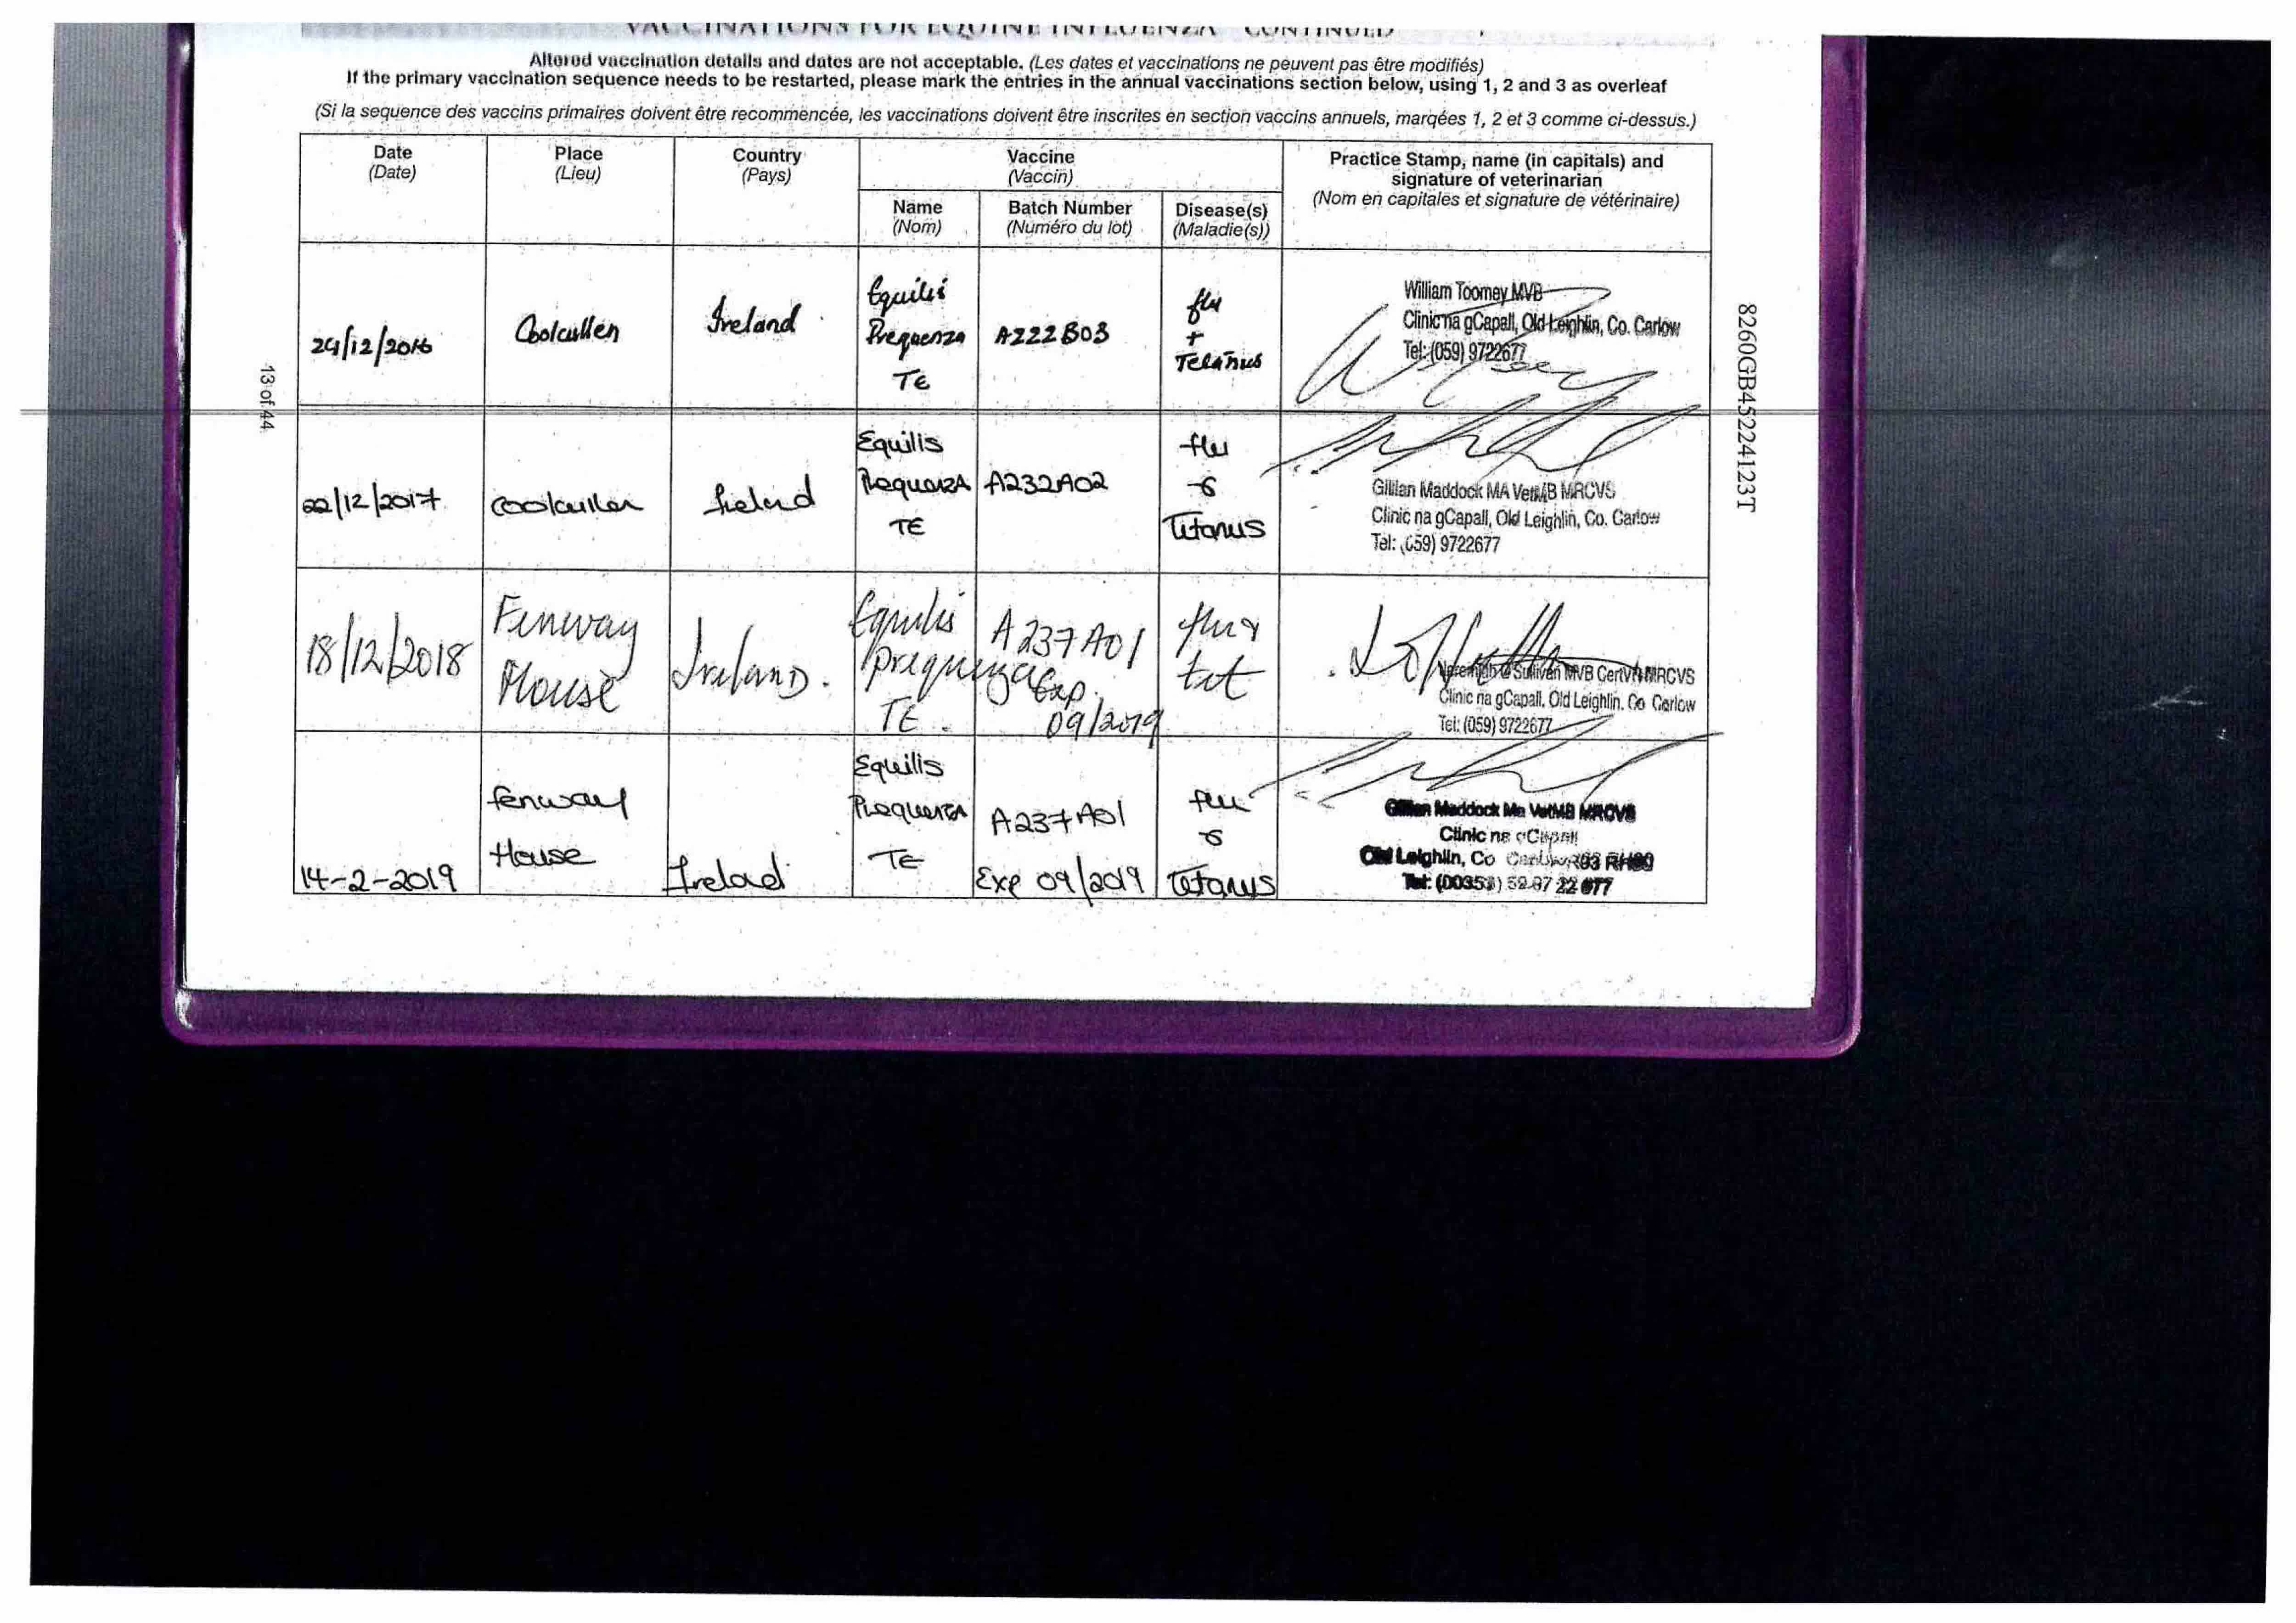 VACCINATIONS FOR EQUINE INFLUENZA CONTINUED
Altered vaccination details and dates are not acceptable. (Les dates et vaccinations ne peuvent pas être modifiés)
If the primary vaccination sequence needs to be restarted, please mark the entries in the annual vaccinations section below, using 1, 2 and 3 as overleaf
(Si la sequence des vaccins primaires doivent être recommencée, les vaccinations doivent être inscrites en section vaccins annuels, marqées 1, 2 et 3 comme ci-dessus.)
Date
(Date)
Place
(Lieu)
Country
(Pays)
Vaccine
(Vaccin)
Name
(Nom)
Batch Number
(Numéro du lot)
Disease(s)
(Maladie(s))
Practice Stamp, name (in capitals) and
signature of veterinarian
(Nom en capitales et signature de vétérinaire)
/12/2016
Coolcullen
Ireland
Equilis
Prequenza
TE
A222B03
flu
+
Tetanus
William Toomey MVB
Clinic na gCapall, Old Leighlin, Co. Carlow
Tel: (059) 9722677
22/12/2017
Coolcullen
Ireland
Equilis
Prequenza
TE
A232A02
flu
&
Tetanus
Gillian Maddock MA VetMB MRCVS
Clinic na gCapall, Old Leighlin, Co. Carlow
Tel: (059) 9722677
18/12/2018
Fenway
House
Ireland.
Equilis
prequenza
TE.
A237A01
Exp.
09/2019
flu &
tet
O'Sullivan MVB CertVR MRCVS
Clinic na gCapall, Old Leighlin, Co Carlow
Tel: (059) 9722677
14-2-2019
fenway
House
Ireland
Equilis
Prequenza
TE
A237A01
Exp 09/2019
flu
&
Tetanus
Gillian Maddock Ma VetMB MRCVS
Clinic na gCapall
Old Leighlin, Co Carlow
Tel: (00353) 59 97 22 677
13 of 44
8260GB45224123T